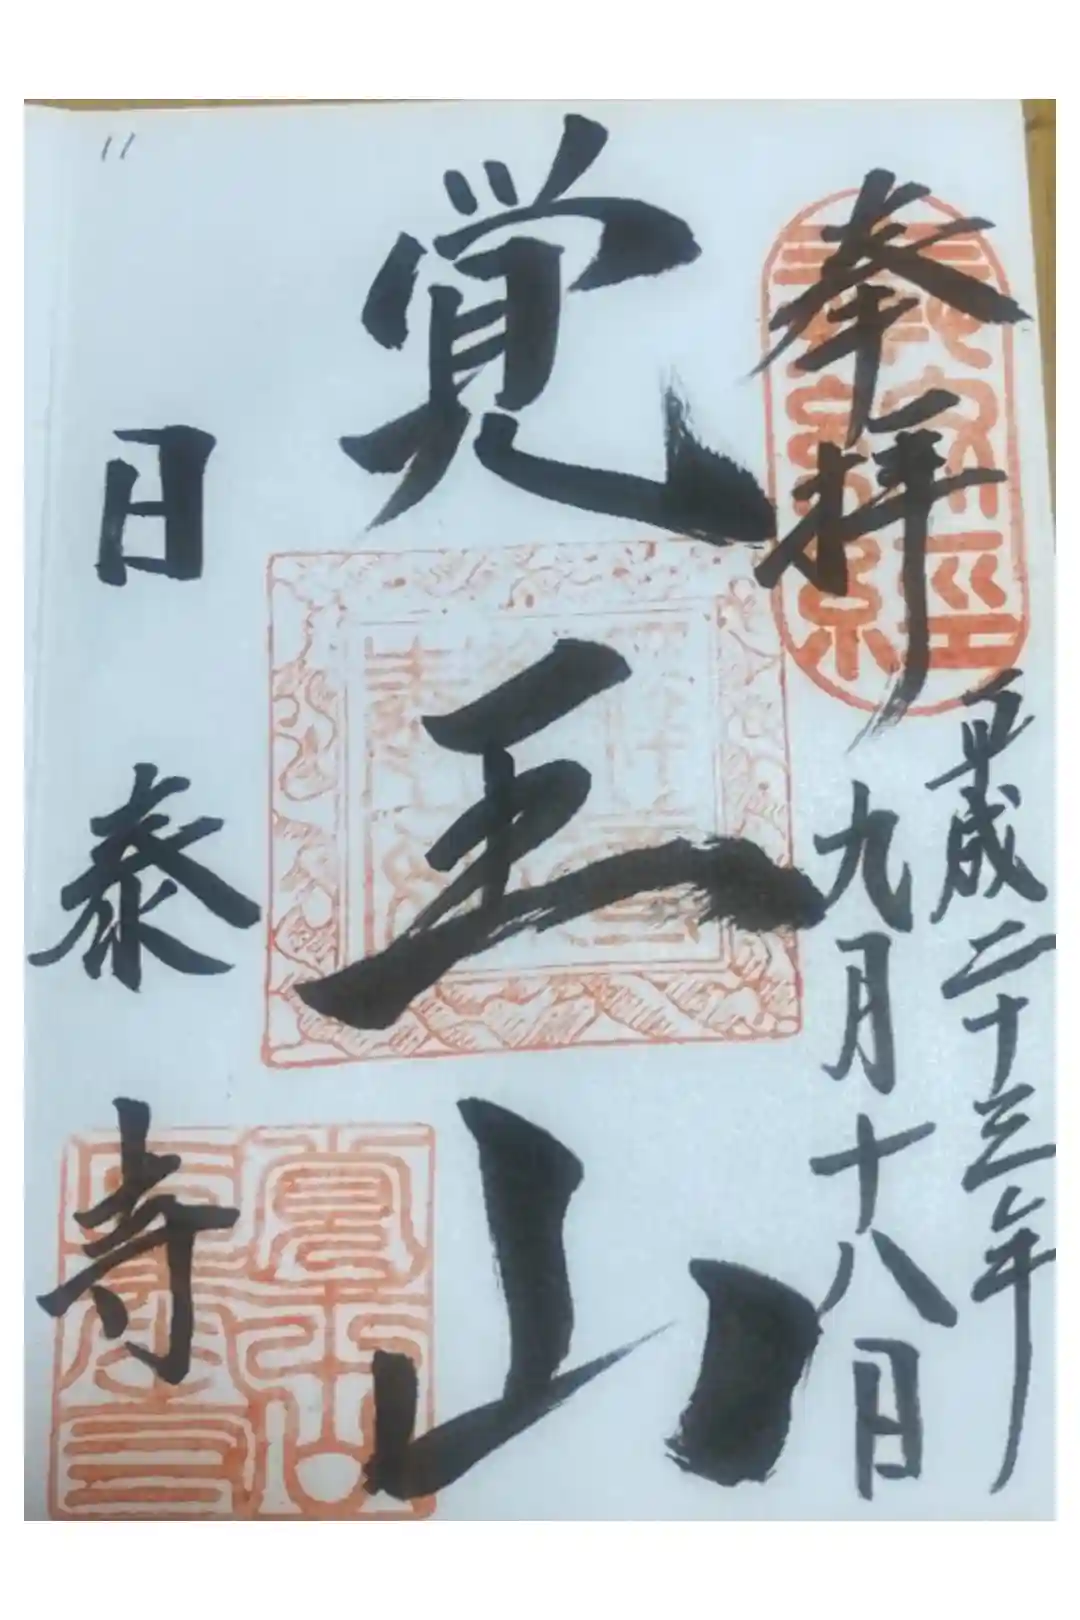 奉拝
平成二十三年
九月十八日
覚王山
日泰寺
11